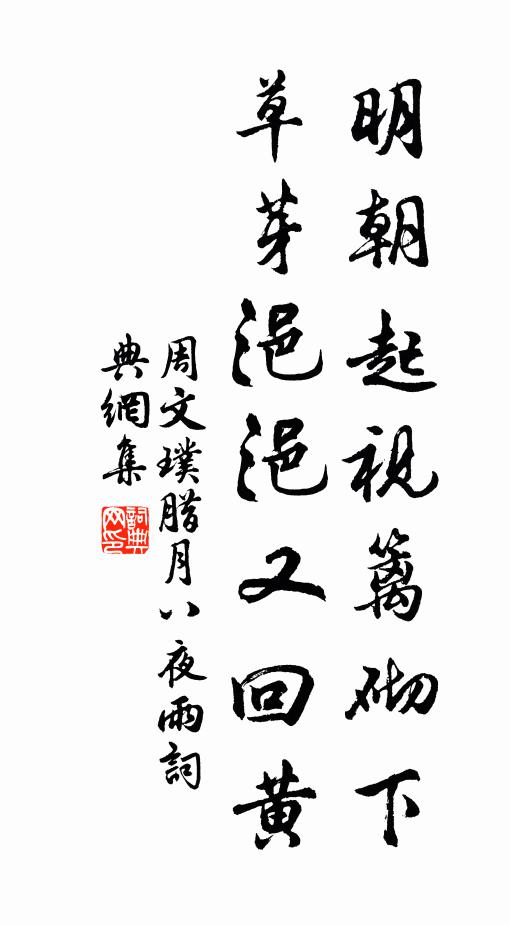 明朝起視篱砌下
草芽浥浥又回黃
周文璞腊月八夜雨詞
典網集
詞典網印